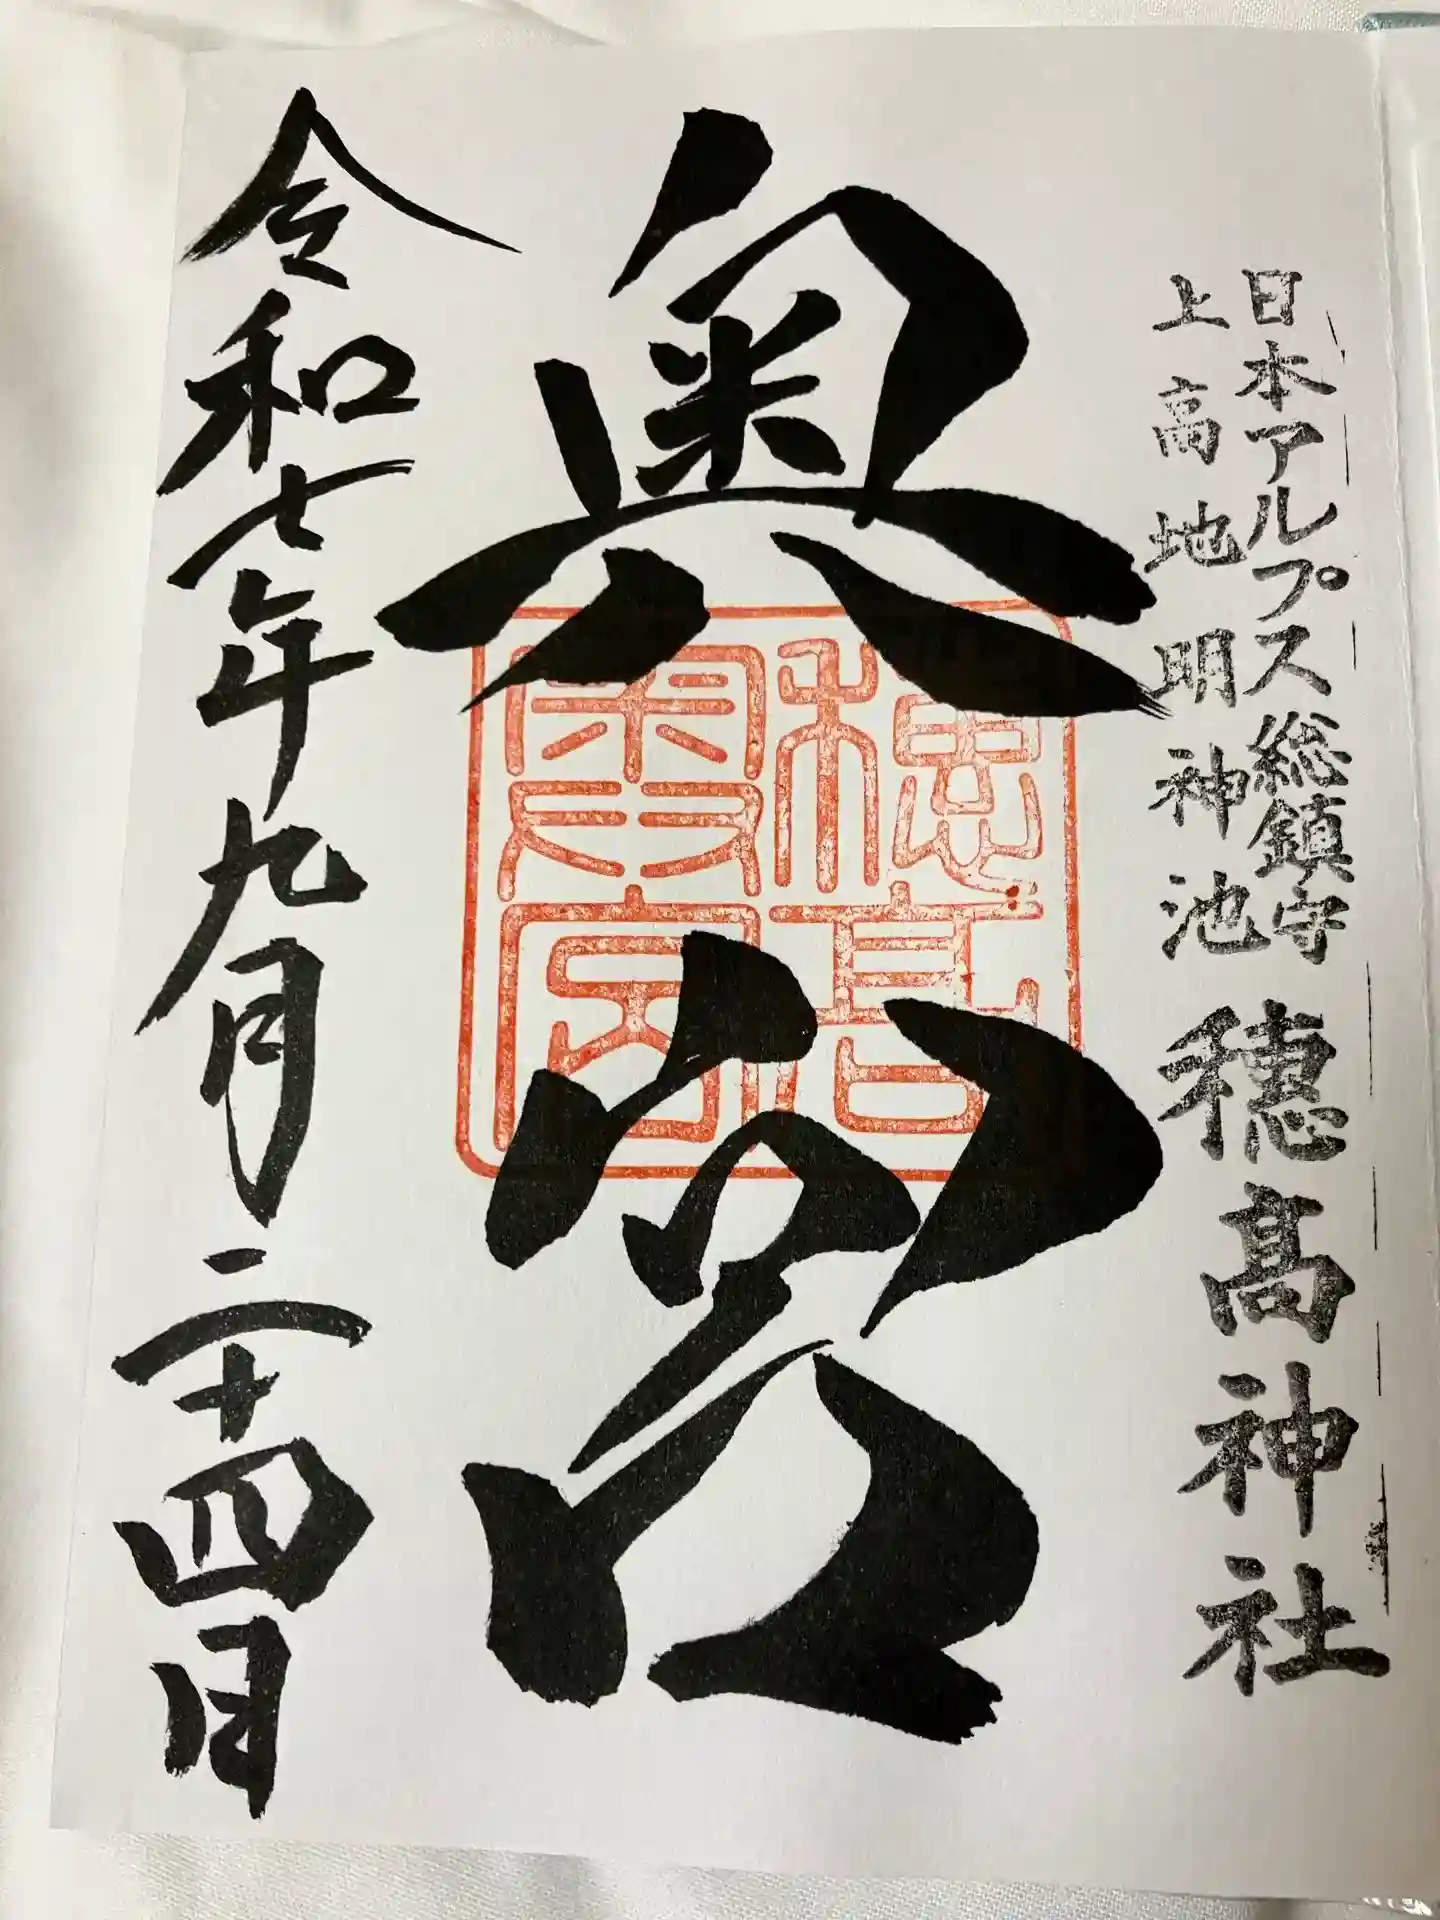 日本アルプス総鎮守
上高地明神池
穗髙神社
奥宮
穂高奥宮
令和七年九月二十四日